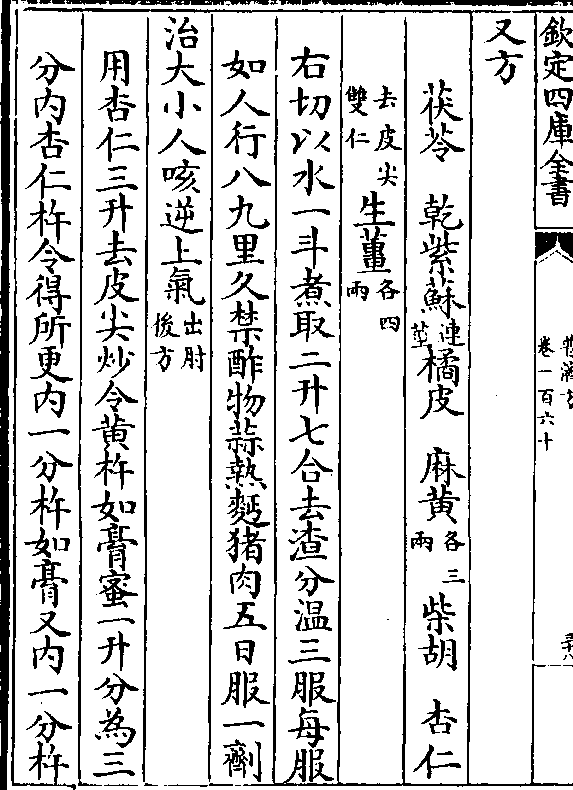 欽定四庫全書
卷一百六十
又方
茯苓 乾紫蘇連莖橘皮 麻黄各三兩 柴胡 杏仁
去皮尖雙仁生薑各四兩
右切以水一斗煮取二升七合去渣分温三服每服
如人行八九里久禁酢物蒜熱麫猪肉五日服一劑
治大小人咳逆上氣出肘後方
用杏仁三升去皮尖炒令黄杵如膏蜜一升分為三
分内杏仁杵令得所更内一分杵如膏又内一分杵